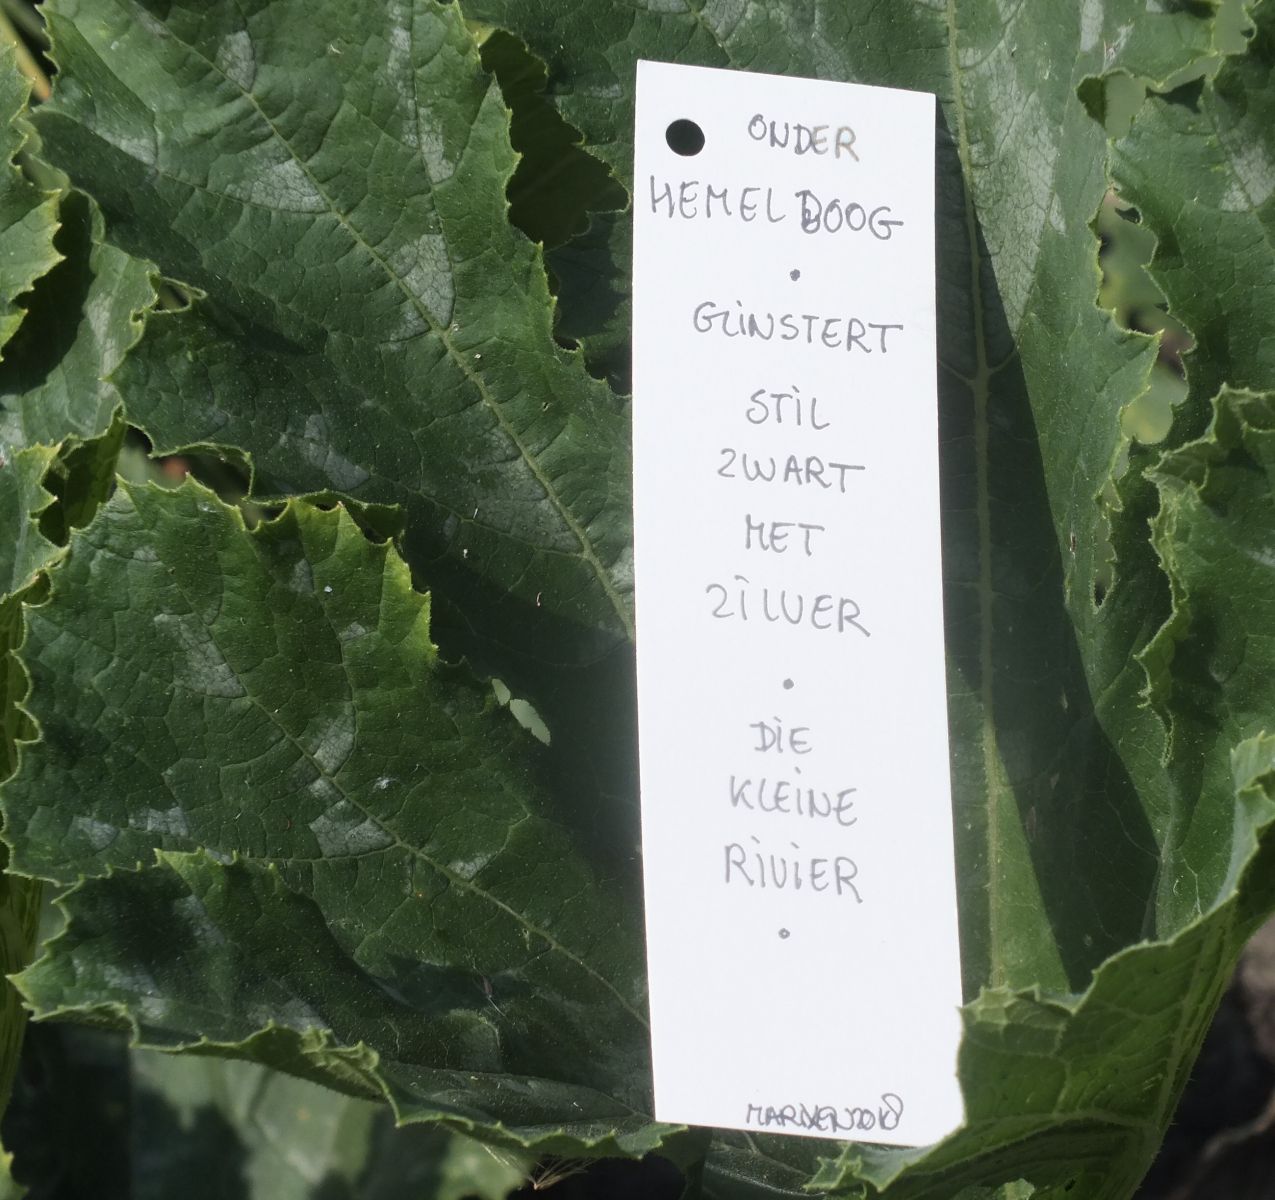 ONDER
HEMELBOOG
•
GLiNSTERT
STiL
ZWART
MET
ZiLVER
•
DiE
KLEiNE
RiViER
•